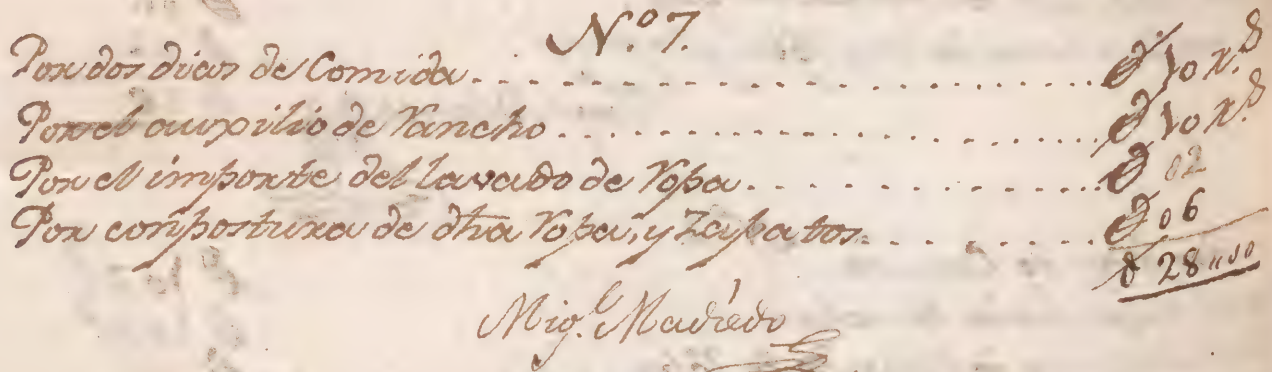 N.º 7.
Por dos dias de Comida . . . . . . . . . . . . . . . . . . . . . . . . . . . . . . $ 10 r.s
Por el auxpilio de rancho . . . . . . . . . . . . . . . . . . . . . . . . . $ 10 r.s
Por el importe del lavado de ropa . . . . . . . . . . . . . . . . $ 02
Por conpostura de dha ropa, y Zapatos . . . . . . . . . . . $ 06
$ 28
Mig.l Madiedo